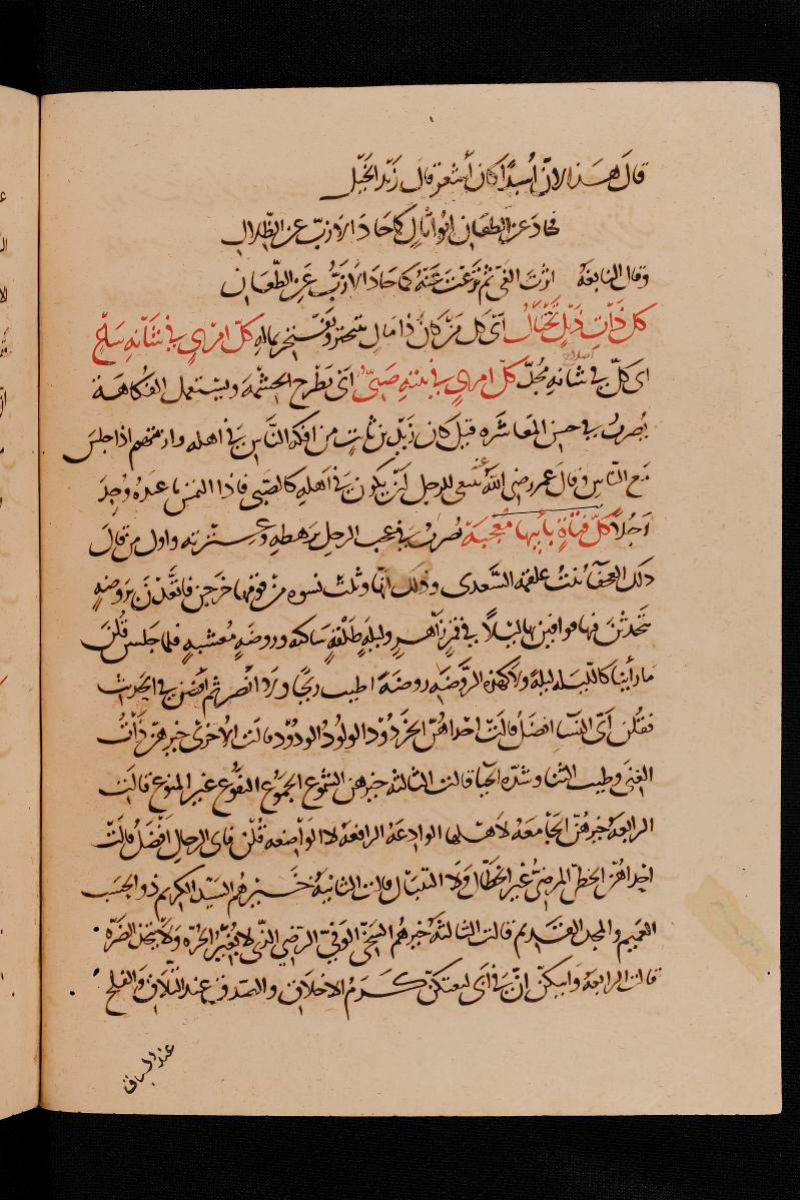 قال هذا لان أسدا كان أشعر قال زيد الخيل
فحاد عن الطعان ابو أثال كما حاد الازب عن الظلال
وقال النابغة اثرت الغي ثم نزعت عنه كما حاد الازب عن الطعان
كل ذات ذيل تختال أي كل من كان ذا مال يتبختر ويفتخر بماله كل امرئ في شانه ساع
أي كل في شانه مجد كل امرئ في بيته صبي أي يطرح الحشمة ويستعمل الفكاهة
يضرب في حسن المعاشرة قيل كان زيد بن ثابت من افكه الناس في اهله وادمثهم اذا جلس
مع الناس وقال عمر رضي الله عنه ينبغي للرجل أن يكون في أهله كالصبي فاذا التمس ما عنده وجد
رجلا كل فتاة بأبيها معجبة يضرب في عجب الرجل برهطه وعشيرته واول من قال
ذلك العجفاء بنت علقمة السعدي وذلك أنها وثلث نسوة من قومها خرجن فاتعدن بروضة
يتحدثن فيها فوافين بها ليلا في قمر زاهر وليلة طلقة ساكنة وروضة معشبة فلما جلسن قلن
ما رأينا كالليلة ليلة ولا كهذه الروضة روضة اطيب ريحا ولا انضر ثم أفضن في الحديث
فقلن أي النساء افضل قالت احداهن الخرود الودود الولود قالت الأخرى خيرهن ذات
الغنى وطيب الثنا وشدة الحيا قالت الثالثة خيرهن الشموع الجموع النفوع غير المنوع قالت
الرابعة خيرهن الجامعة لاهلها الوادعة الرافعة لا الواضعة قلن فاي الرجال أفضل قالت
احداهن الحظي الرضي غير الحظال ولا التبال قالت الثانية خيرهم السيد الكريم ذو الحسب
العميم والمجد القديم قالت الثالثة خيرهم السخي الوفي الرضي الذي لا يغير الحرة ولا يتخذ الضرة
قالت الرابعة وابيكن ان في أبي لنعتكن كرم الاخلاق والصدق عند التلاق والفلج
عند السباق